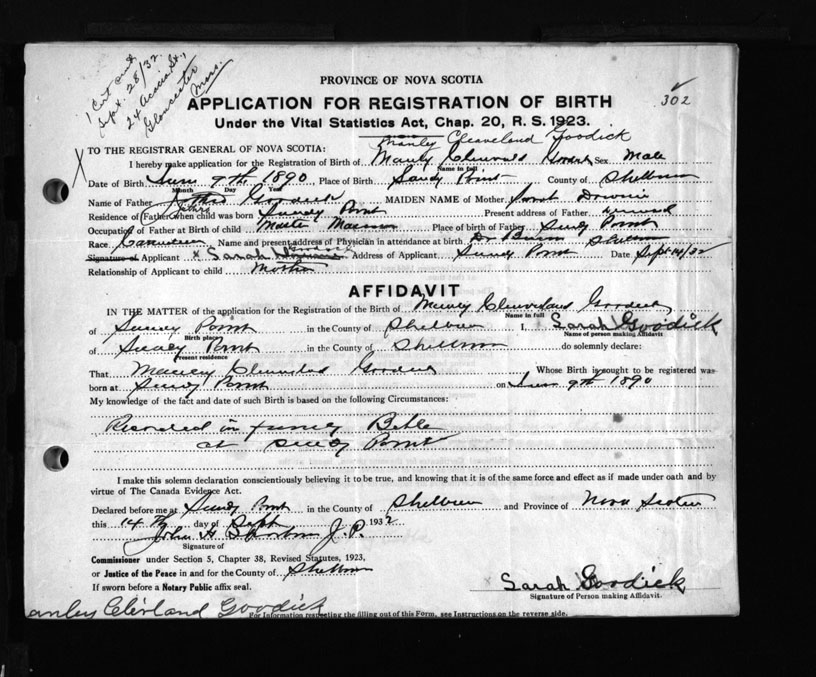 1 Cert only
Sept. 28/32
24 Acacia St.,
Gloucester
Mass.
302
PROVINCE OF NOVA SCOTIA
APPLICATION FOR REGISTRATION OF BIRTH
Under the Vital Statistics Act, Chap. 20, R. S. 1923.
Manly Cleaveland Goodick
TO THE REGISTRAR GENERAL OF NOVA SCOTIA:
I hereby make application for the Registration of Birth of Manly Goodick Sex Male
Name in full
Date of Birth 9th 1890 Place of Birth Sandy Point County of Shelburne
Month Day Year
Name of Father Goodick MAIDEN NAME of Mother Sarah Downie
Residence of Father when child was born Sandy Point Present address of Father
Occupation of Father at Birth of child Master Mariner Place of birth of Father Sandy Point
Race Canadian Name and present address of Physician in attendance at birth Dr Shelburne
Signature of Applicant x Sarah Goodick Address of Applicant Sandy Point Date Sept 14/32
Relationship of Applicant to child Mother
AFFIDAVIT
IN THE MATTER of the application for the Registration of Birth of Manley Cleveland Goodick
Name in full
of Sandy Point in the County of Shelburne I, Sarah Goodick
Birth place Name of person making Affidavit
of Sandy Point in the County of Shelburne do solemnly declare:
Present residence
That Manley Cleveland Goodick Whose Birth is sought to be registered was
born at Sandy Point on 9th 1890
My knowledge of the fact and date of such Birth is based on the following Circumstances:
Recorded in family Bible
at Sandy Point
I make this solemn declaration conscientiously believing it to be true, and knowing that it is of the same force and effect as if made under oath and by
virtue of The Canada Evidence Act.
Declared before me at Sandy Point in the County of Shelburne and Province of Nova Scotia
this 14th day of Sept 1932
John H J.P.
Signature of
Commissioner under Section 5, Chapter 38, Revised Statutes, 1923,
or Justice of the Peace in and for the County of Shelburne
If sworn before a Notary Public affix seal.
Sarah Goodick
Signature of Person making Affidavit.
anley Clevland Goodick
For Information respecting the filling out of this Form, see Instructions on the reverse side.